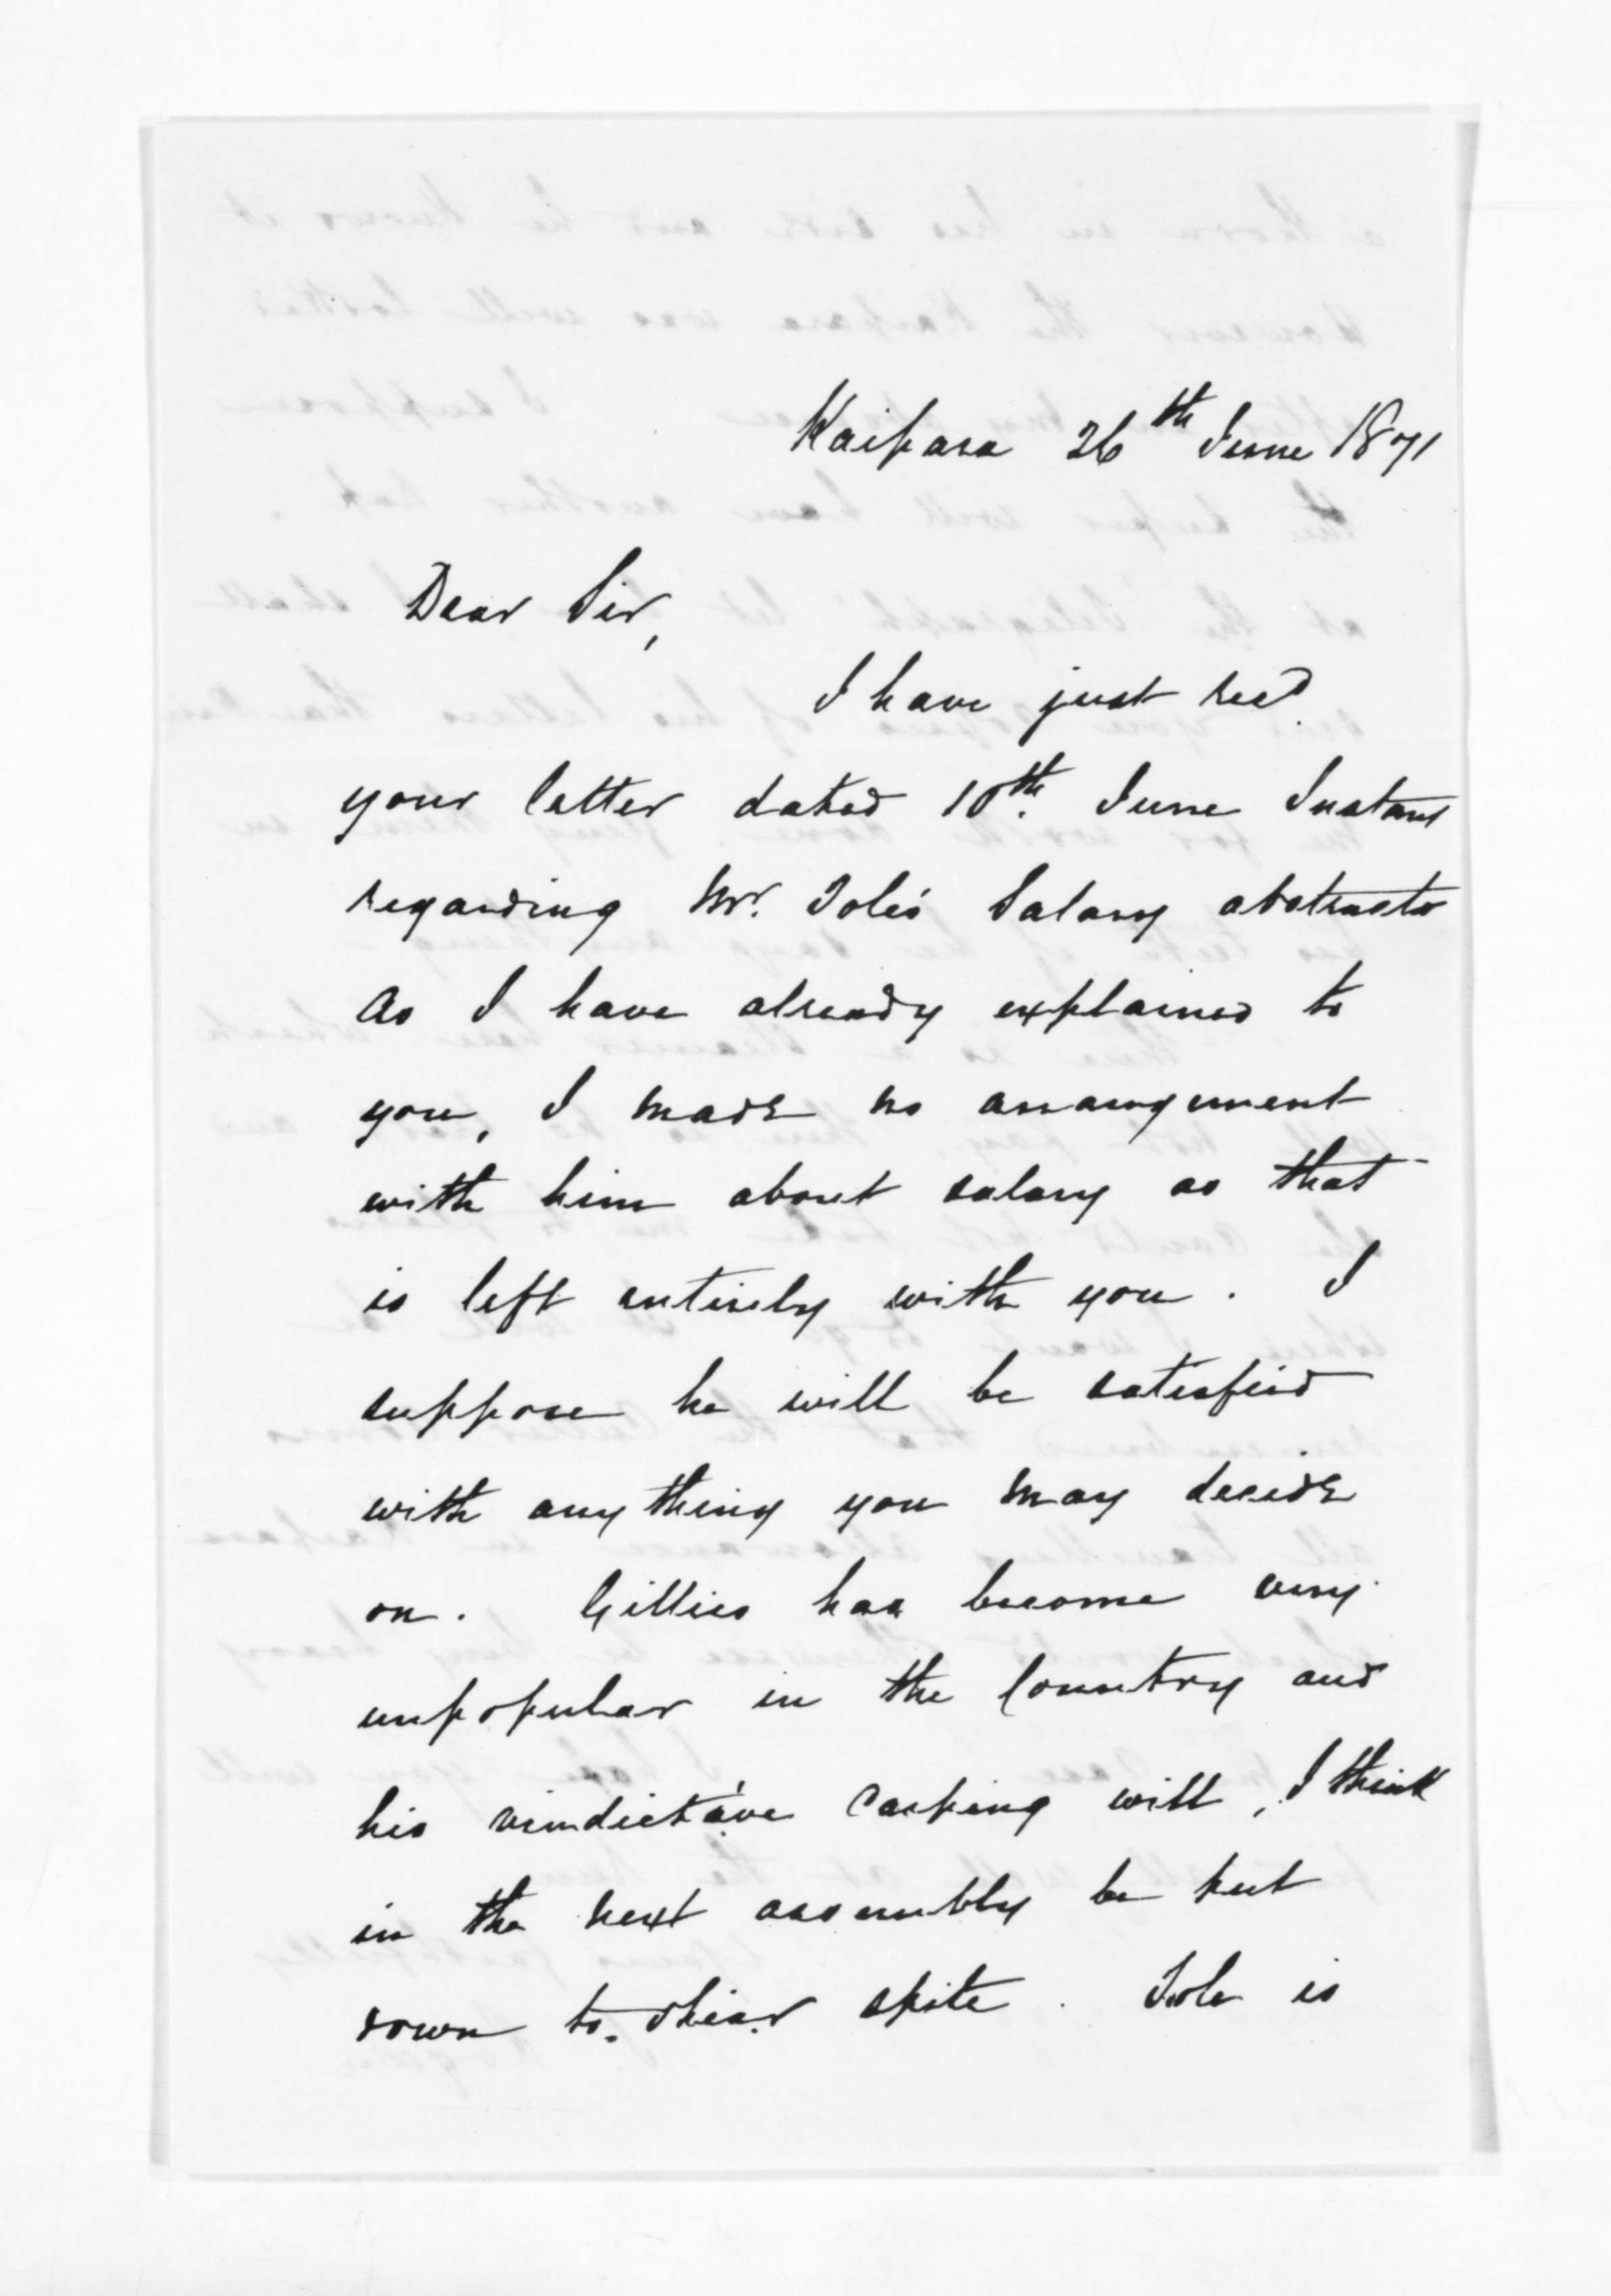 Kaipara 26th June 1871
Dear Sir,
I have just recd
your letter dated 10th. June Instant
regarding Mr. Tole's Salary abstracts
As I have already explained to
you, I made no arrangement
with him about salary as that
is left entirely with you. I
suppose he will be satisfied
with anything you may decide
on. Gillies has become very
unpopular in the Country and
his vindictive carping will, I think
in the next assembly be put
down to shear spite. Tole is